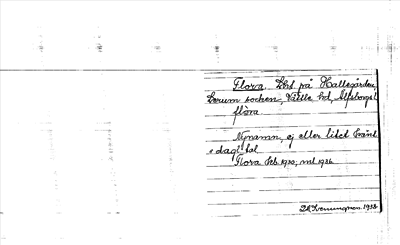 Flora, Lht på Hallegården,
Lerum socken, Vättle hd, Älfsborgs l
flòra
Nynamn, ej eller litet känt
i dagl. tal
Flora Jeb. 1930, mtl 1926
1933